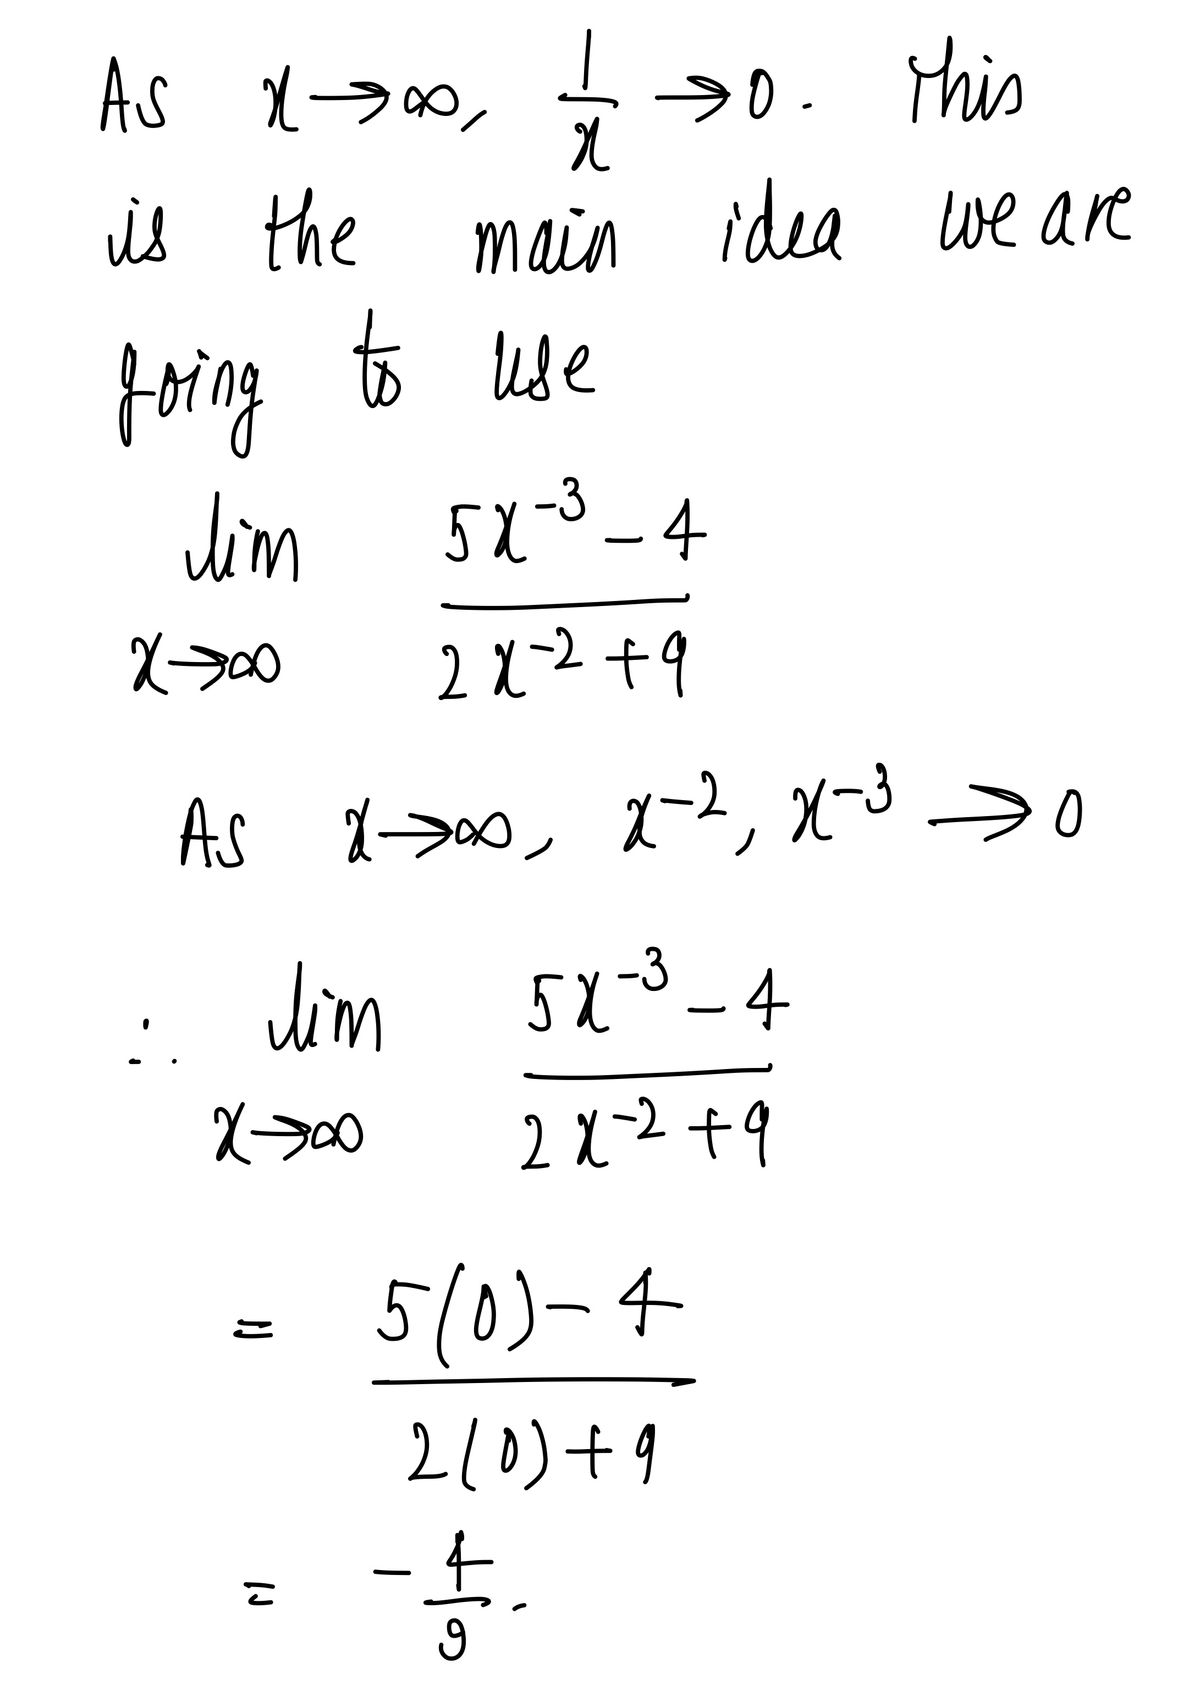 As x→∞, 1/x →0. This
is the main idea we are
going to use
lim x→∞ (5x⁻³ - 4)/(2x⁻² + 9)
As x→∞, x⁻², x⁻³ → 0
∴ lim x→∞ (5x⁻³ - 4)/(2x⁻² + 9)
= (5(0) - 4)/(2(0) + 9)
= -4/9.